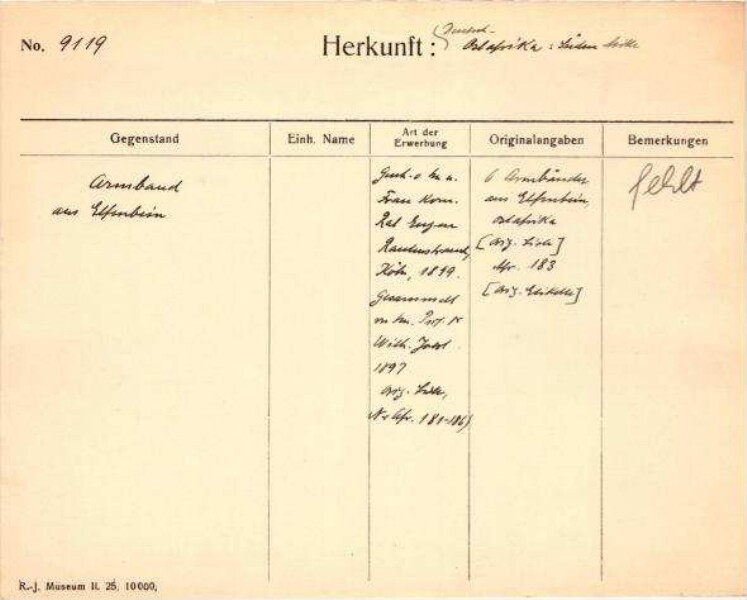 No. 9119
Herkunft: Deutsch-
Ostafrika: Süden
Gegenstand
Einh. Name
Art der
Erwerbung
Originalangaben
Bemerkungen
Armband
aus Elfenbein
Gesch. v. Hn u.
Frau Kom.
Rat Eugen
Rautenstrauch,
Köln, 1899.
Gesammelt
von Hn. Prof. Dr
Wilh. Joest
1897
Orig. Liste,
Nr Afr. 181-186)
6 Armbänder
aus Elfenbein,
Ostafrika
[Orig. Liste]
Afr. 183
[Orig. Etikette]
fehlt
R.-J. Museum II. 25. 10000,